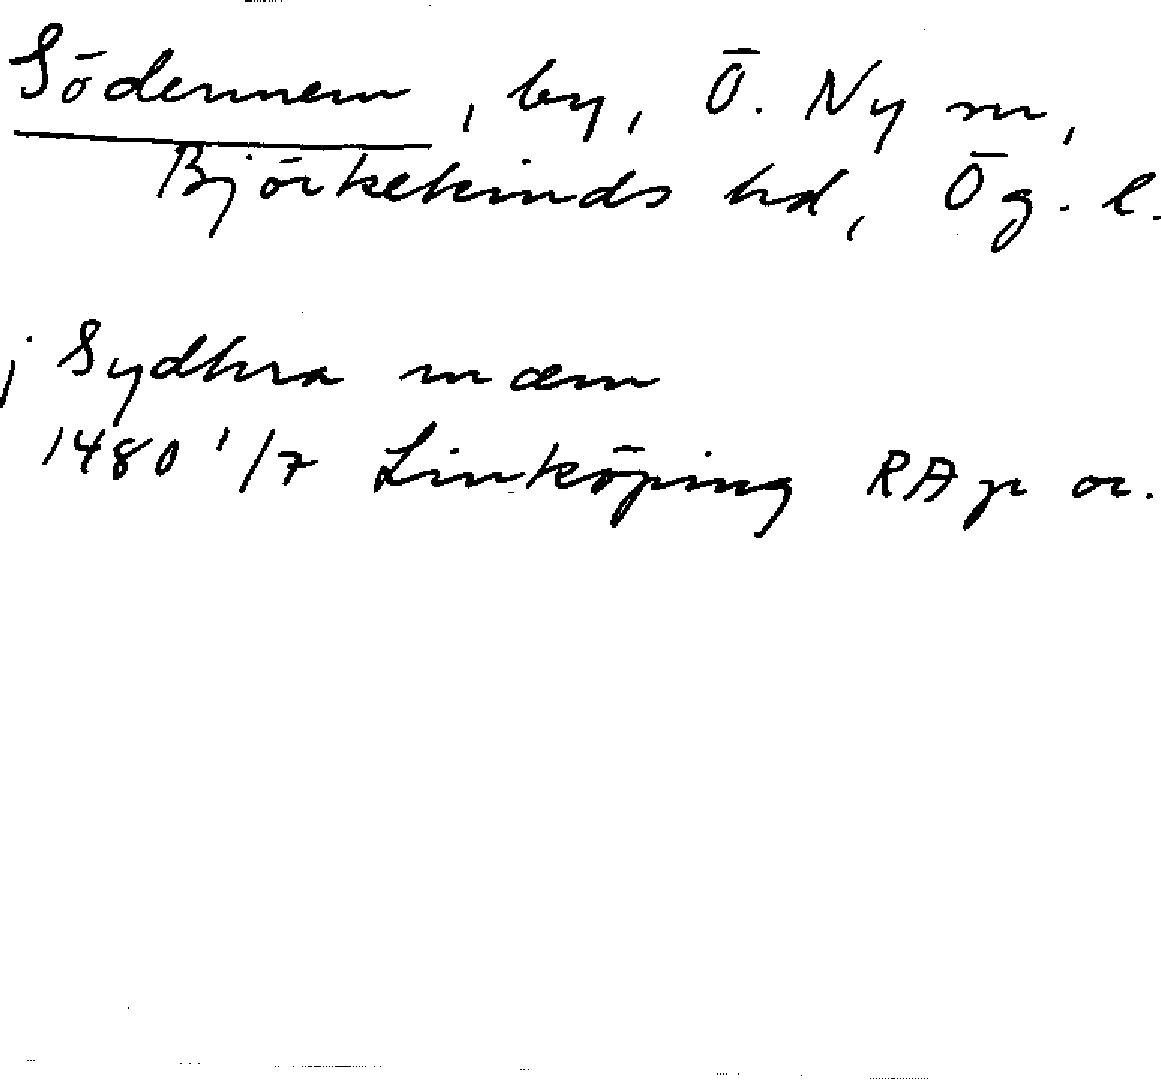 Södermem, by, Ö. Ny sn,
Björkekinds hd, Ög. l.
j Sydhra mæm
1480 1/7 Linköping RAp or.